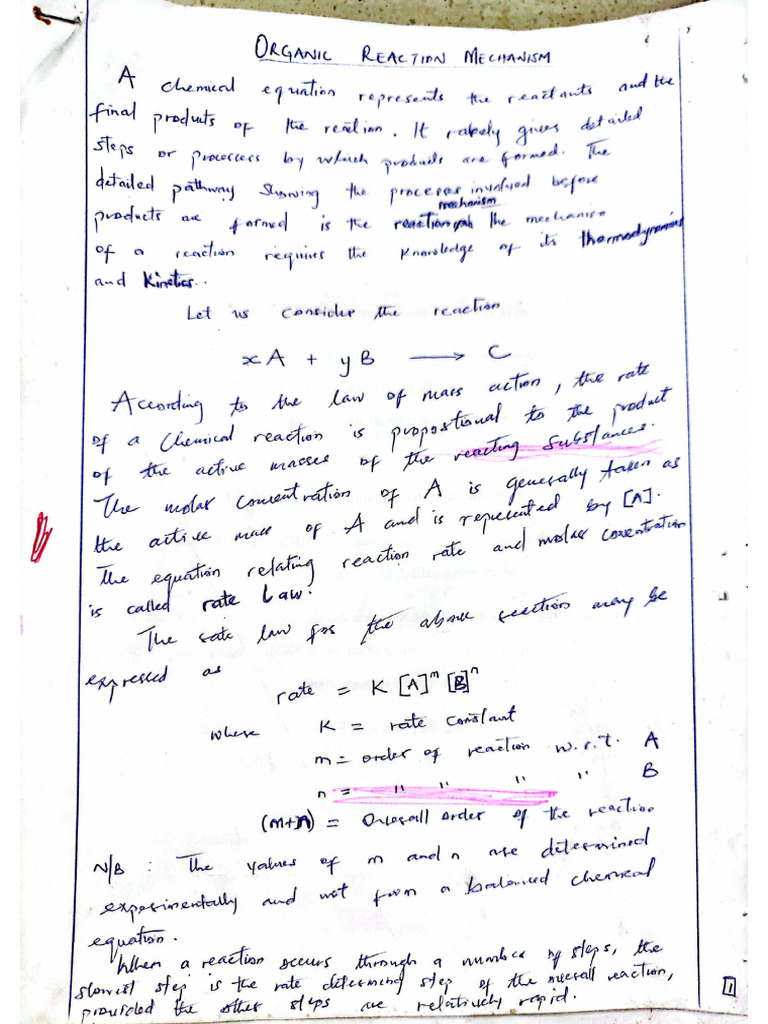 ORGANIC REACTION MECHANISM
A chemical equation represents the reactants and the
final products of the reaction. It rarely gives detailed
steps or processes by which products are formed. The
detailed pathway showing the processes involved before
mechanism
products are formed is the reaction path The mechanism
of a reaction requires the knowledge of its thermodynamics
and kinetics..
Let us consider the reaction
xA + yB → C
According to the law of mass action, the rate
of a chemical reaction is propotional to the product
of the active masses of the reacting substances.
The molar concentration of A is generally taken as
the active mass of A and is represented by [A].
The equation relating reaction rate and molar concentration
is called rate law.
The rate law for the above reaction may be
expressed as
rate = K [A]ᵐ [B]ⁿ
where K = rate constant
m = order of reaction w.r.t. A
n = " " " " B
(m+n) = Overall order of the reaction
N/B : The values of m and n are determined
experimentally and not from a balanced chemical
equation.
When a reaction occurs through a number of steps, the
slowest step is the rate determining step of the overall reaction,
provided the other steps are relatively rapid.
1